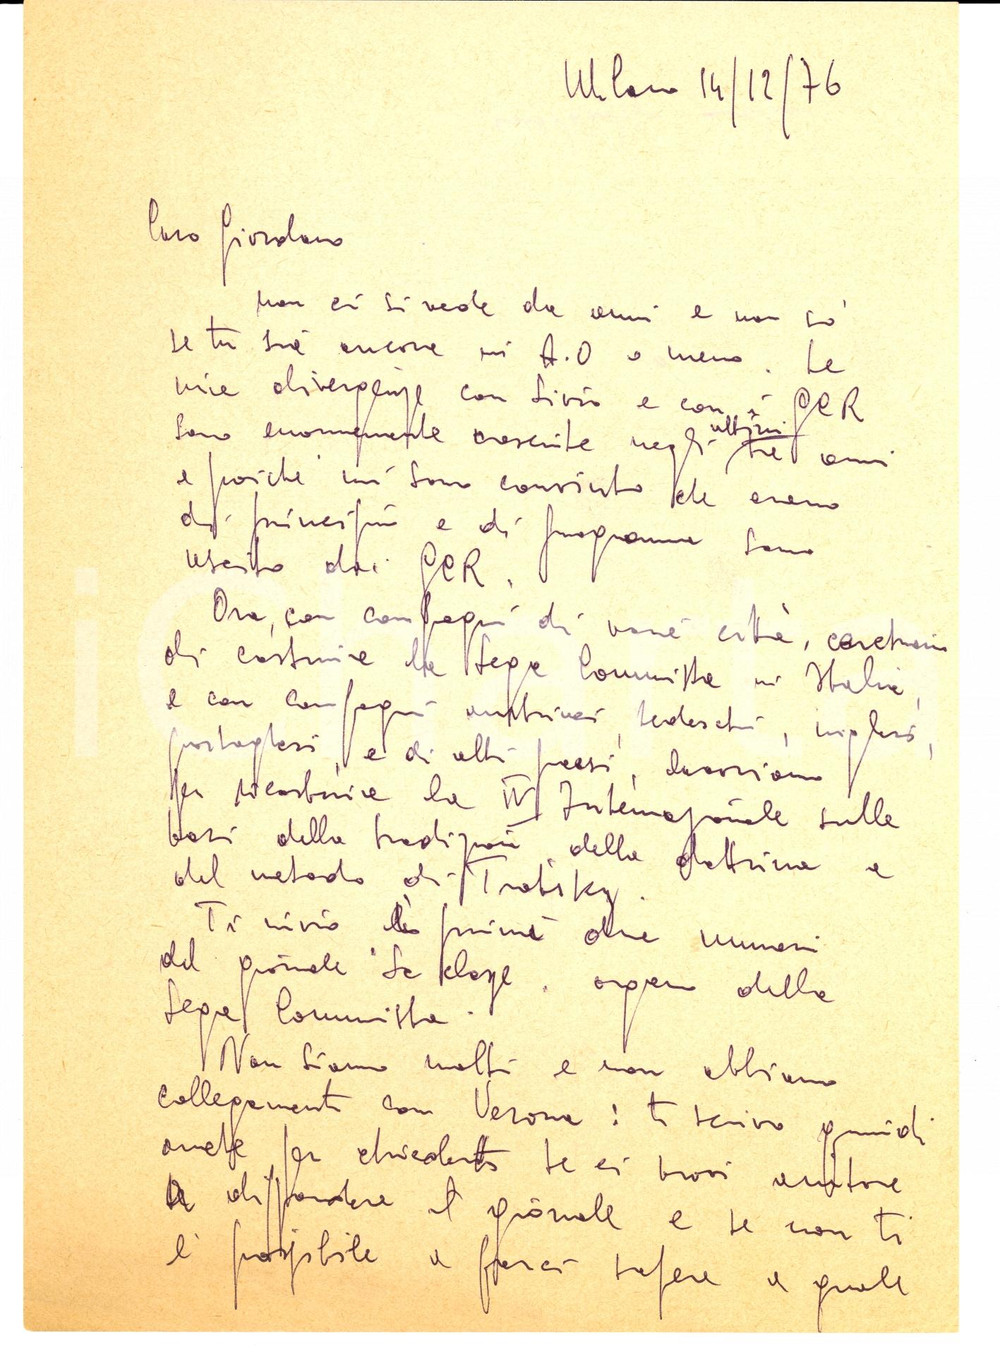 Milano 14/12/76
Caro Giordano
non ci si vede da anni e non so'
se tu sia ancora in A.O o meno. Le
mie divergenze con Livio e con i GCR
ultimi
sono enormemente cresciute negli tre anni
e poiché mi sono convinto che erano
di principii e di programma sono
uscito dai GCR.
Ora, con compagni di varie città, cerchiamo
di costruire la Lega Comunista in Italia,
e con compagni austriaci, tedeschi, inglesi,
portoghesi, e di altri paesi, lavoriamo
per ricostruire la IV Internazionale sulle
basi della tradizione, della dottrina e
del metodo di Trotsky.
Ti invio i primi due numeri
del giornale "La classe", organo della
Lega Comunista.
Non siamo molti e non abbiamo
collegamenti con Verona: ti scrivo quindi
anche per chiederti se ci puoi aiutare
a diffondere il giornale e se non ti
è possibile a farci sapere a quale